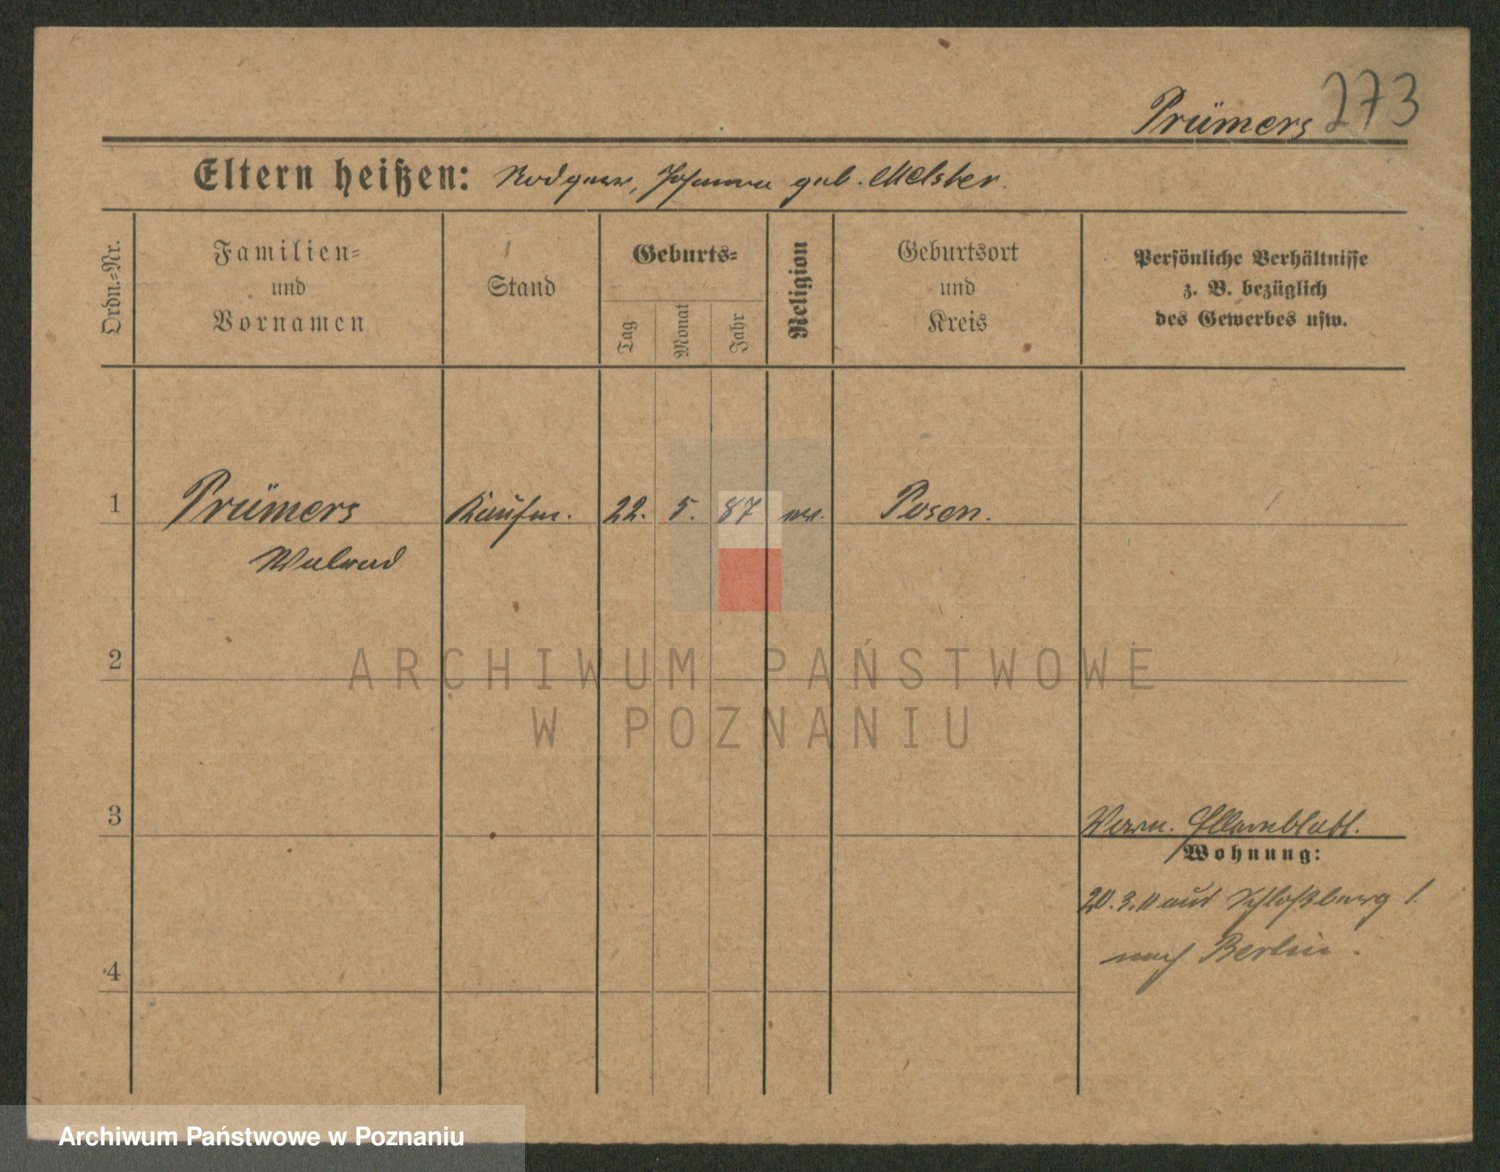 Prümers 273
Eltern heißen: Rodgero, Johanna geb. Melster.
Ordn.=Nr.
Familien=
und
Vornamen
Stand
Geburts=
Tag
Monat
Jahr
Religion
Geburtsort
und
Kreis
Persönliche Verhältnisse
z. B. bezüglich
des Gewerbes usw.
1 Prümers Kaufm. 22. 5. 87 ev. Posen.
Walrad
2
3
Elternblatt.
Wohnung:
20.3.11 aus Schloßberg 1.
nach Berlin.
4
ARCHIWUM PAŃSTWOWE
W POZNANIU
Archiwum Państwowe w Poznaniu